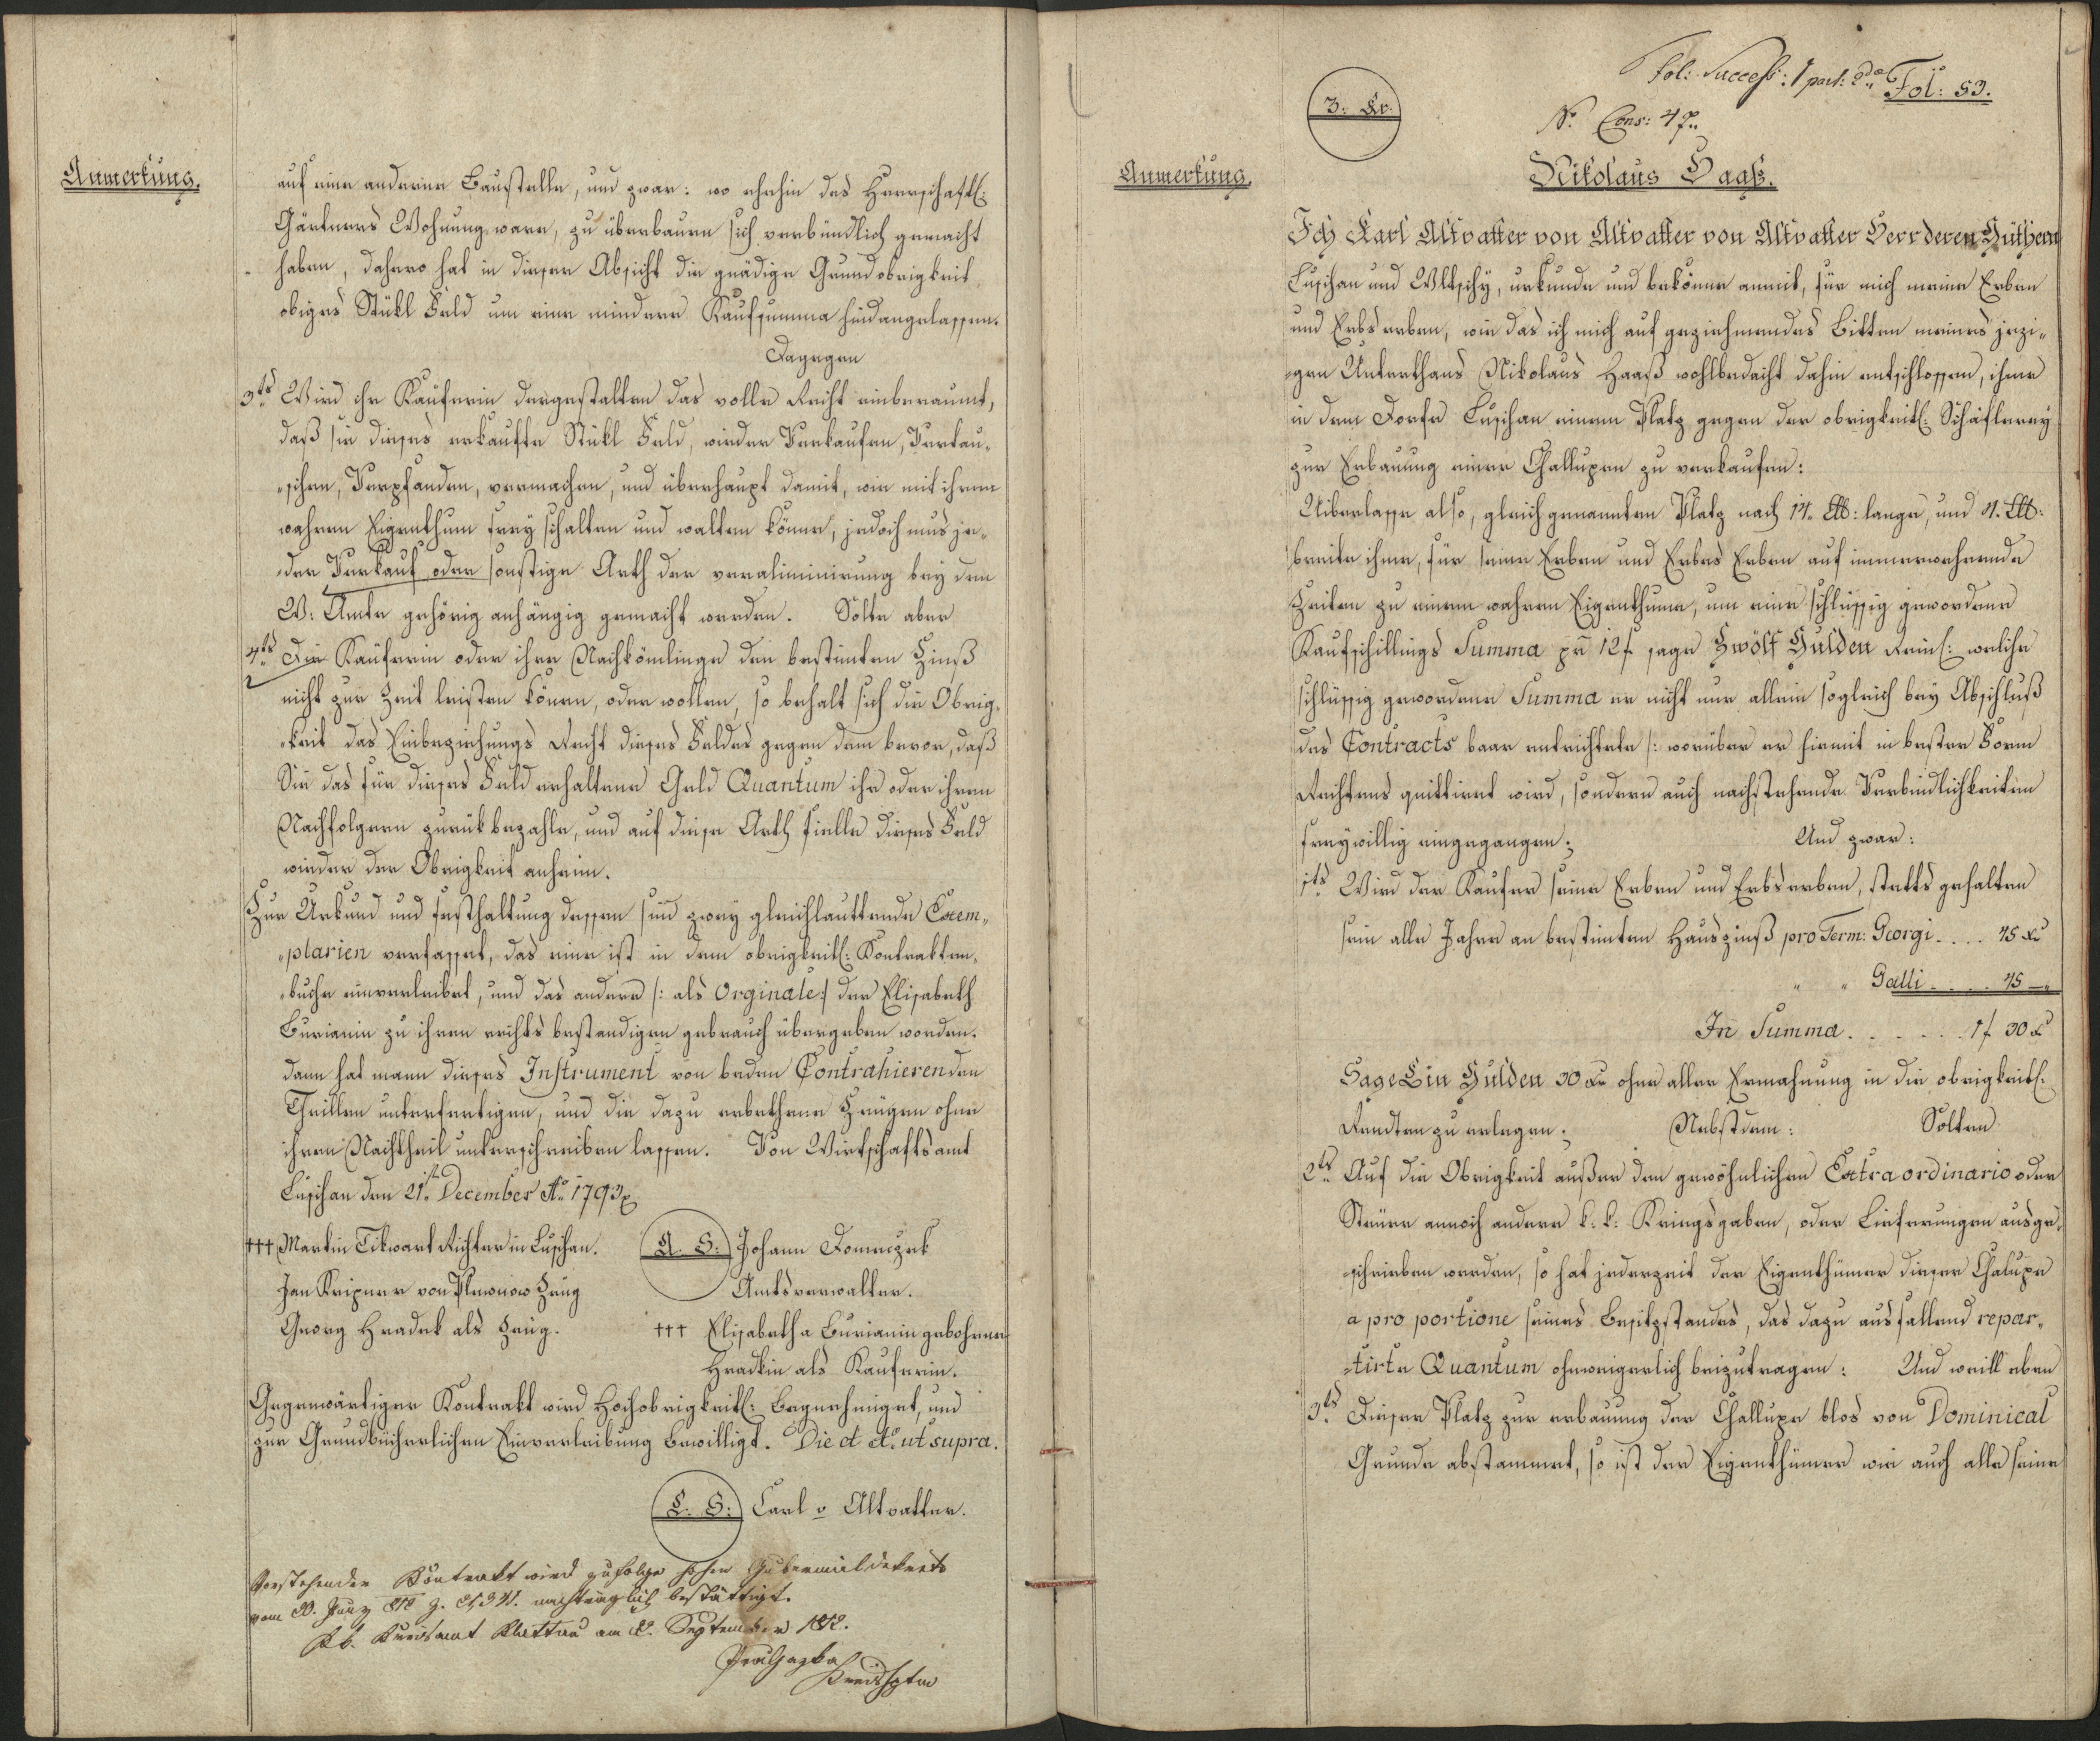 Anmerkung.
auf eine anderen Baustelle, und zwar: wo ehehin des Herrschaftl:
Gärtners Wohnung ware, zu überbauen sich verbündlich gemacht
haben, dahero hat in dieser Absicht die gnädige Grundobrigkeit
obiges Stükl Feld um eine mindere Kaufsumma hindangelassen.
Dagegen
3tś Wird ihr Käuferin dergestalten das volle Recht einberaumt,
daß sie dieses erkaufte Stükl Feld, wieder Verkaufen, Vertau„
„schen, Verpfänden, vermachen, und überhaupt damit, wie mit ihrem
wahren Eigenthum frey schalten und walten könne, jedoch mus je„
„der Verkauf oder sonstige Arth der veraliminirung bey dem
W: Amte gehörig anhängig gemacht werden. Solte aber
4tś Die Käuferin oder ihre Nachkömlinge den bestimten Zinß
nicht zur Zeit leisten könen, oder wollen, so behalt sich die Obrig„
„keit das Einbeziehungs Recht dieses Feldes gegen dem bevor, daß
Sie das für dieses Feld erhaltene Geld Quantum ihr oder ihren
Nachfolgern zurük bezahle, und auf diese Arth fielle dieses Feld
wieder der Obrigkeit anheim.
Zur Urkund und festhaltung dessen sind zwey gleichlauttende Exem„
„plarien verfasset, das eine ist in dem obrigkeitl: Kontrakten„
„buche einverleibet, und das andere /: als Orginale:/ der Elisabeth
Burianin zu ihren rechts bestandigen gebrauch übergeben worden.
Dann hat mann dieses Instrument von beden Contrahierenden
Theillen unterfertigen, und die dazu erbethene Zeugen ohne
ihren Nachtheil unterschreiben lassen. Von Wirtschaftsamt
Luschan den 21t. December Ao 1793
+++ Martin Tikwart Richter in Luschan.
L. S. Johann Domaczek
Jan Kripner von Plewnow Zeug
Amtsverwalter.
Georg Hradek als Zeug.
+++ Elisabetha Burianin gebohrne
Hradkin als Kauferin.
Gegenwärtiger Kontrakt wird Hochobrigkeitl: Begnehmiget, und
zur Grundbücherlichen Einverleibung Bewilligt. Die et Ao ut supra.
L. S. Carl v Altvatter.
Vorstehender Kontrakt wird zufolge hohen Gubernialdekrets
vom 30. Juny 812 Z. 25341. nachträglich bestättigt.
Kk. Kreisamt Klattau am 12. September 1812.
Kreishptm
Fol: Success: 1 part: 2da
Fol: 53.
3: Xr.
No Cons: 47„
Anmerkung.
Nikolaus Haaß.
Ich Karl Altvatter von Altvatter von Altvatter Herr deren Güthern
Luschan und Wltschy, urkunde und bekönne anmit, für mich meine Erben
und Erbserben, wie das ich mich auf geziehmendes Bitten meines jezi„
„gen Unterthans Nikolaus Haaß wohlbedacht dahin entschlossen, ihme
in dem Dorfe Luschan einem Platz gegen der obrigkeitl: Schäflerey
zur Erbauung einer Challupen zu verkaufen:
Uiberlasse also, gleich genannten Platz nach 14. Ell: lange, und 11. Ell:
breite ihme, für seine Erben und Erbes Erben auf immerwehrende
Zeiten zu einem wahren Eigenthume, um eine schlüssig gewordene
Kaufschillings Summa pr 12 f sage Zwölf Gulden Rein: welche
schlüssig gewordene Summa er nicht nur allein sogleich bey Abschluß
des Contracts baar entrichtete /: worüber er hiemit in bester Form
Rechtens quittiret wird, sondern auch nachstehende Verbindlichkeiten
freywillig eingegangen;
Und zwar:
1tś Wird der Kaufer seine Erben und Erbserben, stetts gehalten
sein alle Jahre an bestimten Hauszinß pro Term: Georgi .... 45 Xr
„ „ Galli ..... 45 —„
In Summa ....... 1 f 30 Xr
Sage Ein Gulden 30 Xr ohne aller Ermahnung in die obrigkeitl:
Rendten zu erlegen; Nebstdem: Solten
2tś Auf die Obrigkeit außer den gewöhnlichen Extraordinario oder
Steuer annoch andere k: k: Kriegsgaben, oder Lieferungen ausge„
„schrieben werden, so hat jederzeit der Eigenthümer dieser Chalupe
a pro portione seines Besitzstandes, das dazu ausfallend repar„
„tirte Quantum ohnweigerlich beizutragen: Und weill eben
3tś Dieser Platz zur erbauung der Challupe blos von Dominical
Grunde abstammet, so ist der Eigenthümer wie auch alle seine